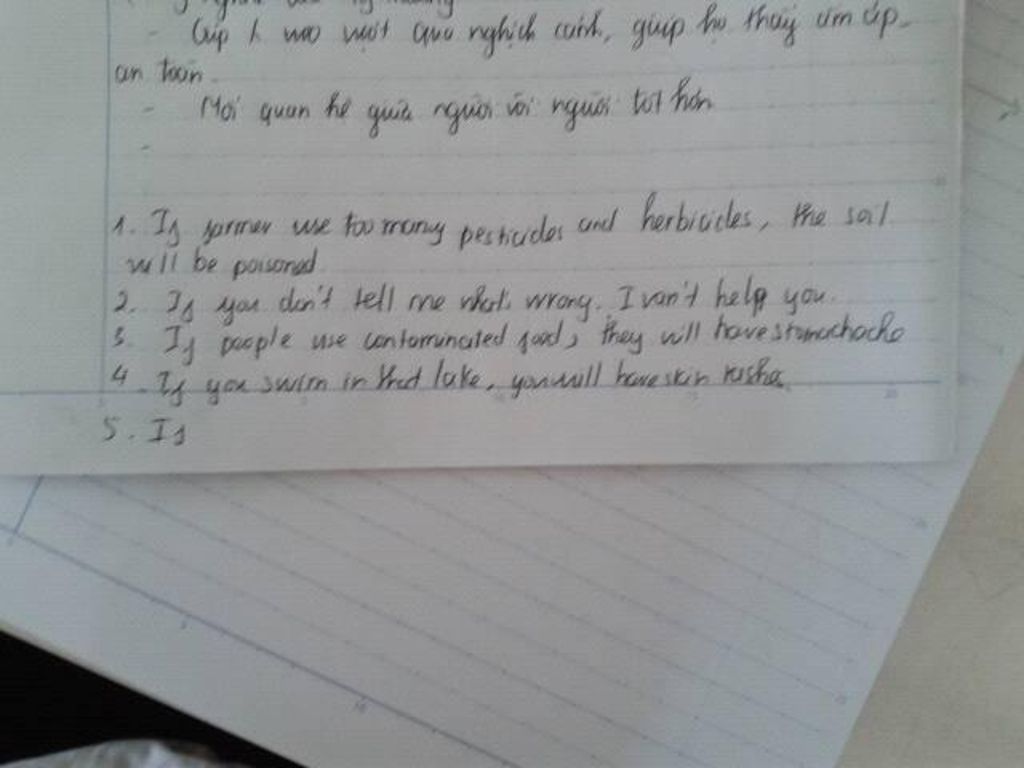 - Giúp h vượt qua nghịch cảnh, giúp họ thấy ấm áp.
an toàn.
- Mối quan hệ giữa người với người tốt hơn
-
1. If farmer use too many pesticides and herbicides, the soil
will be poisoned
2. If you don't tell me what's wrong. I can't help you.
3. If people use contaminated food, they will have stomachache
4. If you swim in that lake, you will have skin rashes
5. If